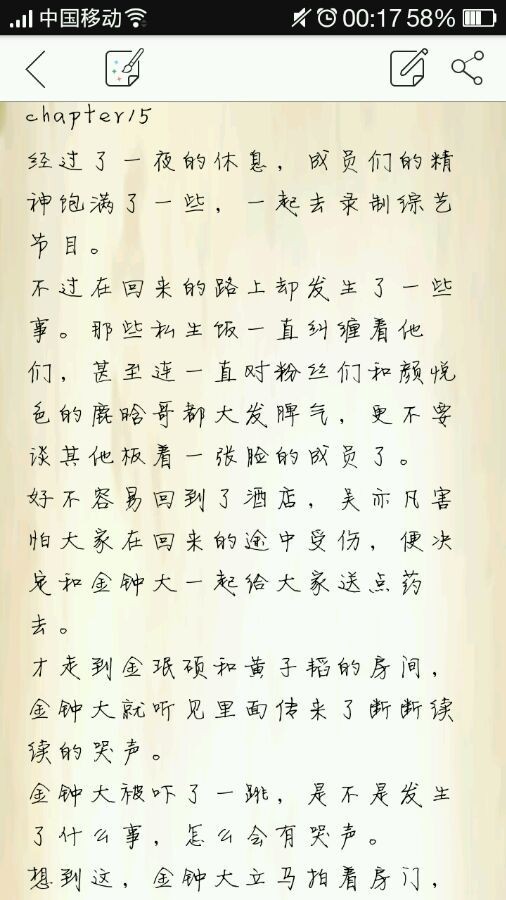 中国移动 00:17 58%
chapter15
经过了一夜的休息，成员们的精
神饱满了一些，一起去录制综艺
节目。
不过在回来的路上却发生了一些
事。那些私生饭一直纠缠着他
们，甚至连一直对粉丝们和颜悦
色的鹿晗哥都大发脾气，更不要
谈其他板着一张脸的成员了。
好不容易回到了酒店，吴亦凡害
怕大家在回来的途中受伤，便决
定和金钟大一起给大家送点药
去。
才走到金珉硕和黄子韬的房间，
金钟大就听见里面传来了断断续
续的哭声。
金钟大被吓了一跳，是不是发生
了什么事，怎么会有哭声。
想到这，金钟大立马拍着房门，